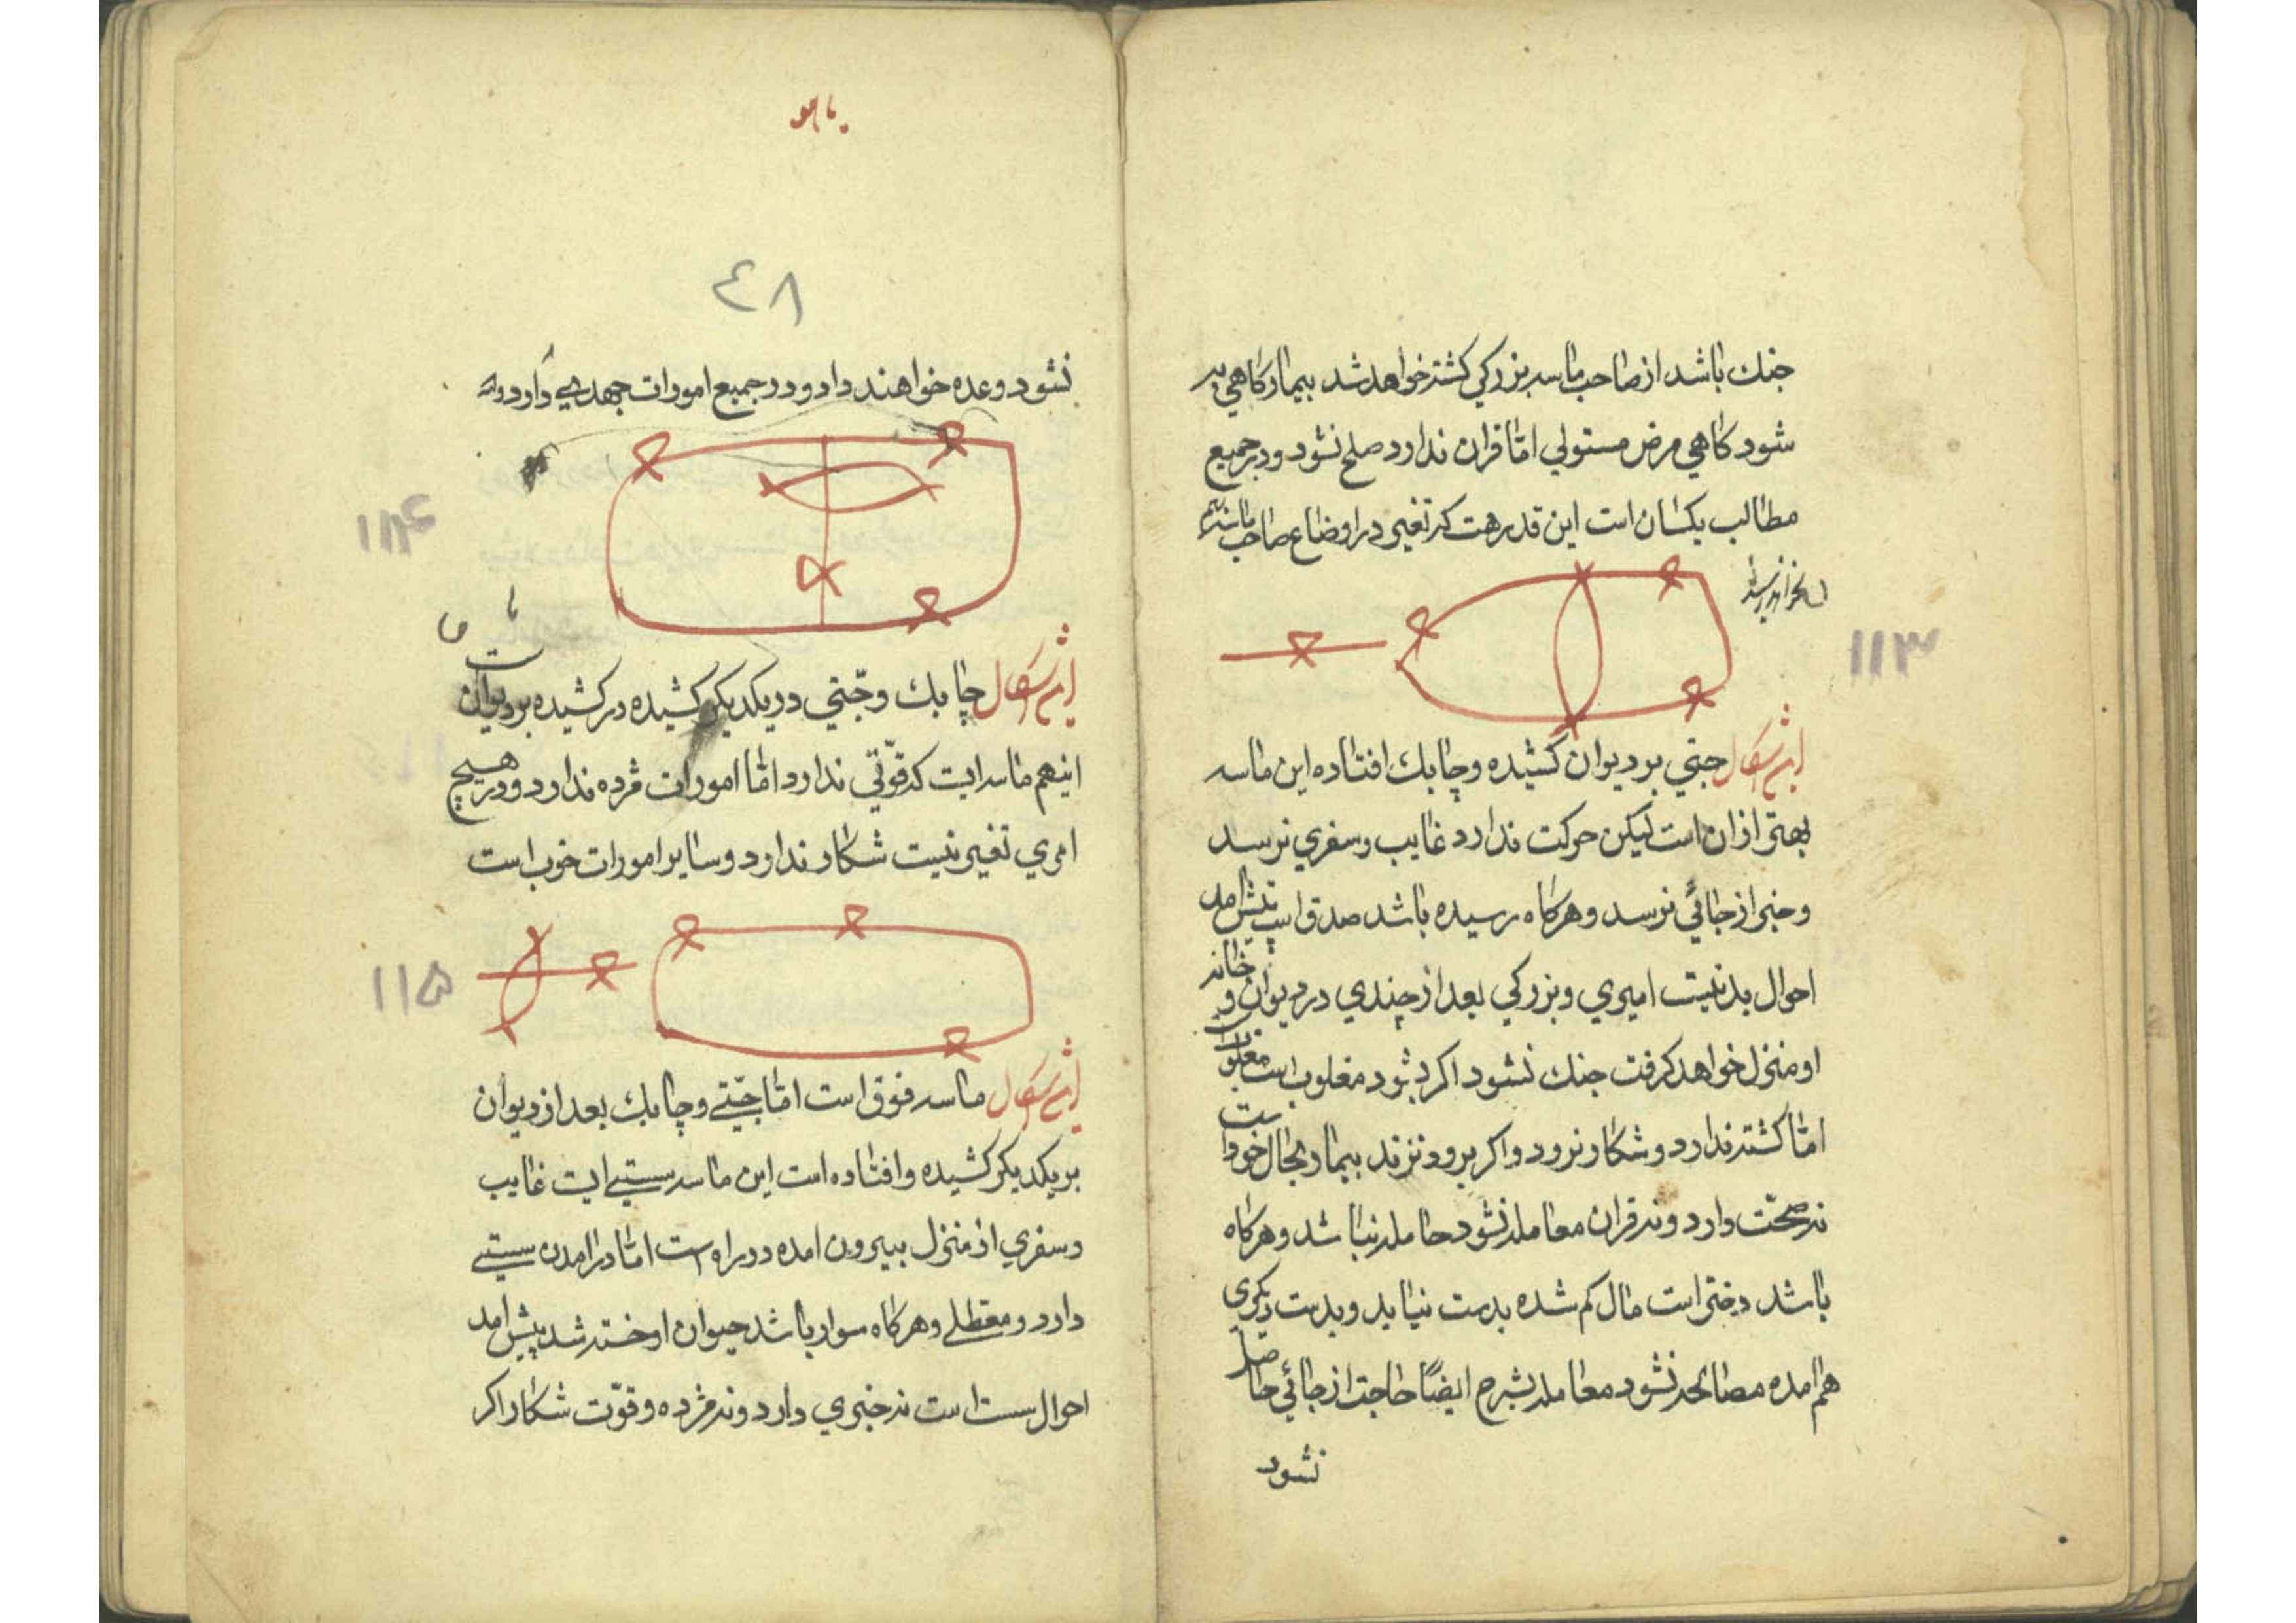 جنك باشد از صاحب ماسه بزركي كشته خواهد شد بيمار كاهي به
شود كاهي مرض مستولي امّا قران ندارد صلح نشود ودر جميع
مطالب يكسان است اين قدر هست كه تغيير در اوضاع صاحب ماسه بهم
نخواهد رسيد
۱۱۳
اين شكل جبتي بر ديوان كشيده وچابك افتاده اين ماسه
بهتر از ان است ليكن حركت ندارد غايب وسفري نرسد
وخبر از جائي نرسد وهركاه رسيده باشد صدق است پيش امد
احوال بد نيست اميري وبزركي بعد از چندي در ديوان وخانه
او منزل خواهد كرفت جنك نشود اكر بشود مغلوب است
امّا كشته ندارد وشكار نرود واكر برود نزند بيمار بحال خود است
نه صحّت دارد ونه قران معامله نشود حامله نباشد وهركاه
باشد دختر است مال كم شده بدست نيايد وبدست ديكري
هم امده مصالحه نشود معامله بشرح ايضًا حاجت از جائي حاصل
نشود
۴۸
نشود وعده خواهند داد ودر جميع امورات جهد بي دارد وله
۱۱۴
اين شكل چابك وجبتي در يكديكر كشيده در كشيده بر ديوان است
اينهم ماسه ايست كه قوّتي ندارد امّا امورات مژده ندارد ودر هيچ
امري تغيير نيست شكار ندارد وساير امورات خوب است
۱۱۵
اين شكل ماسه فوق است امّا جبتي وچابك بعد از ديوان
بر يكديكر كشيده وافتاده است اين ماسه سستي ايست غايب
وسفري از منزل بيرون امده در راه است امّا در امدن سستي
دارد ومعطلي وهركاه سوار باشد حيوان او خسته شد پيش امد
احوال سست است نه خبري دارد ونه مژده وقوّت شكار اكر